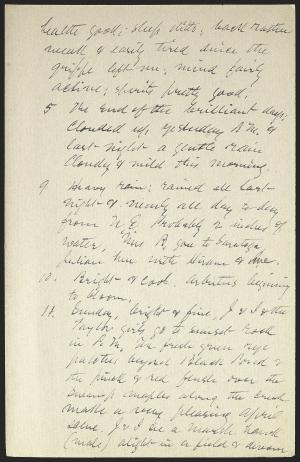 health good; sleep ditto; back rather
weak & easily tired since the
grippe left me; mind fairly
active; spirits pretty good.
5 The end of the brilliant days;
clouded up yesterday P.M. &
last night a gentle rain
Cloudy & mild this morning.
9 Heavy rain; rained all last
night & nearly all day to-day
from N.E. Probably 2 inches of
water, Mrs B. gone to Saratoga
Julian here with Hiram & me.
10. Bright & cool. Arbutus beginning
to bloom.
11. Sunday, bright & fine, J & I & the
Taylor girls go to sunset rock
in P.M. The fresh green rye
patches beyond Black Pond &
the pink & red flush over the
swamp maples along the creek
make a very pleasing April
scene. J & I see a marsh hawk
(male) alight in a field &